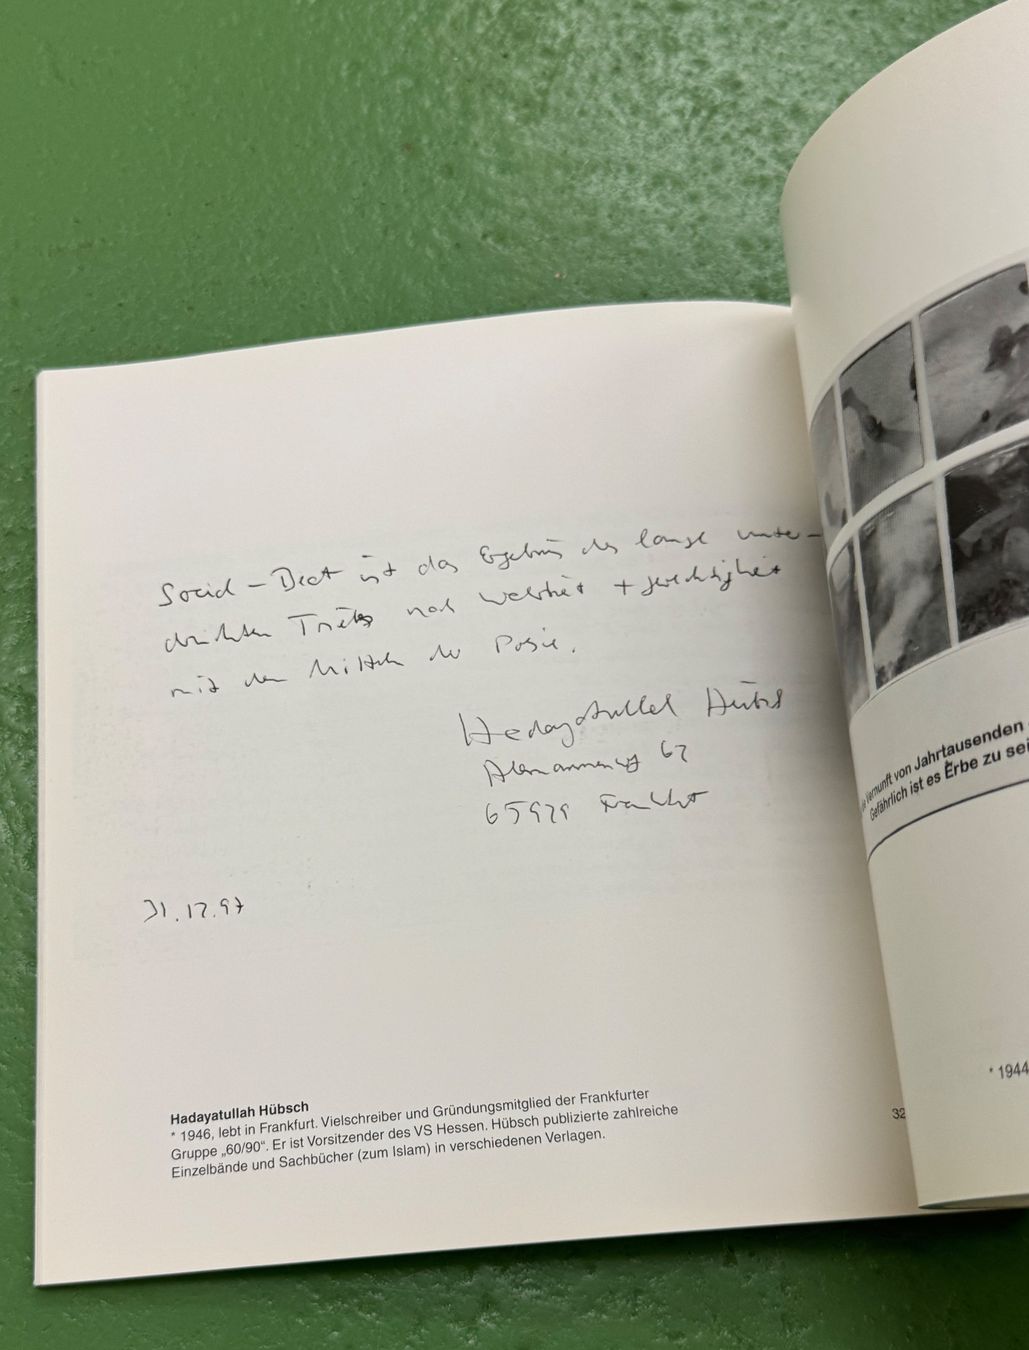 Social-Beat ist das Ergebnis des lange unter-
drückten Triebs nach Wahrheit + Gerechtigheit
mit den Mitteln der Poesie.
Hadayatullah Hübsch
Alemannenweg 62
65929 Frankfurt
31.12.97
Hadayatullah Hübsch
* 1946, lebt in Frankfurt. Vielschreiber und Gründungsmitglied der Frankfurter
Gruppe „60/90“. Er ist Vorsitzender des VS Hessen. Hübsch publizierte zahlreiche
Einzelbände und Sachbücher (zum Islam) in verschiedenen Verlagen.
32
Vernunft von Jahrtausenden
Gefährlich ist es Erbe zu sei
* 1944